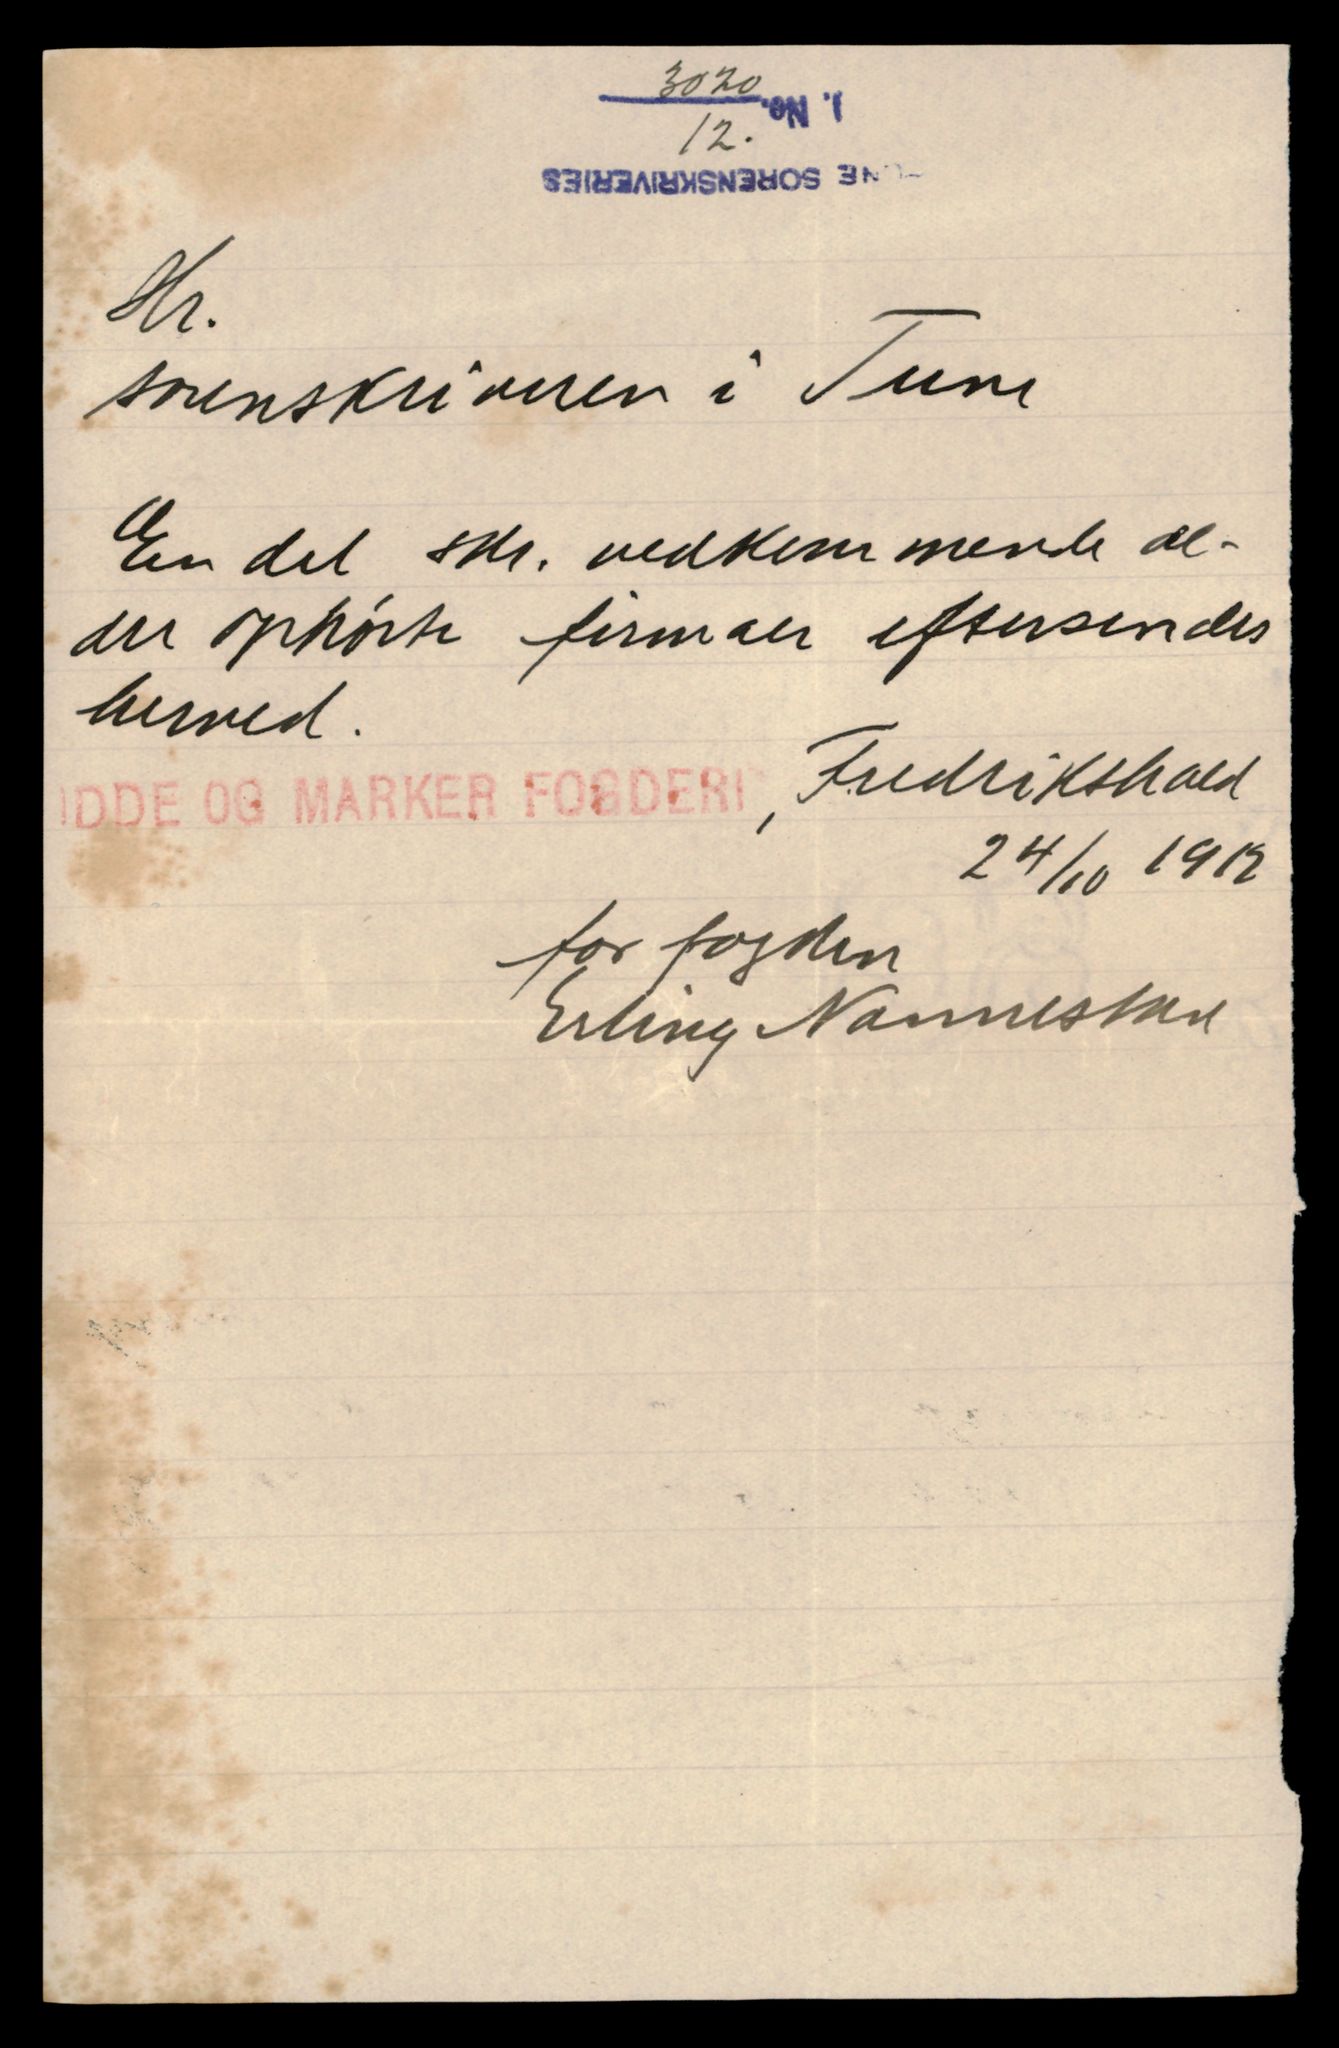 3020
J. No.
12.
TUNE SORENSKRIVERIES
Hr.
sorenskriveren i Tune
En del skr. vedkommende æl-
dre ophørte firmaer eftersendes
herved.
IDDE OG MARKER FOGDERI, Fredrikshald
24/10 1912
for fogden
Erling Nannestad